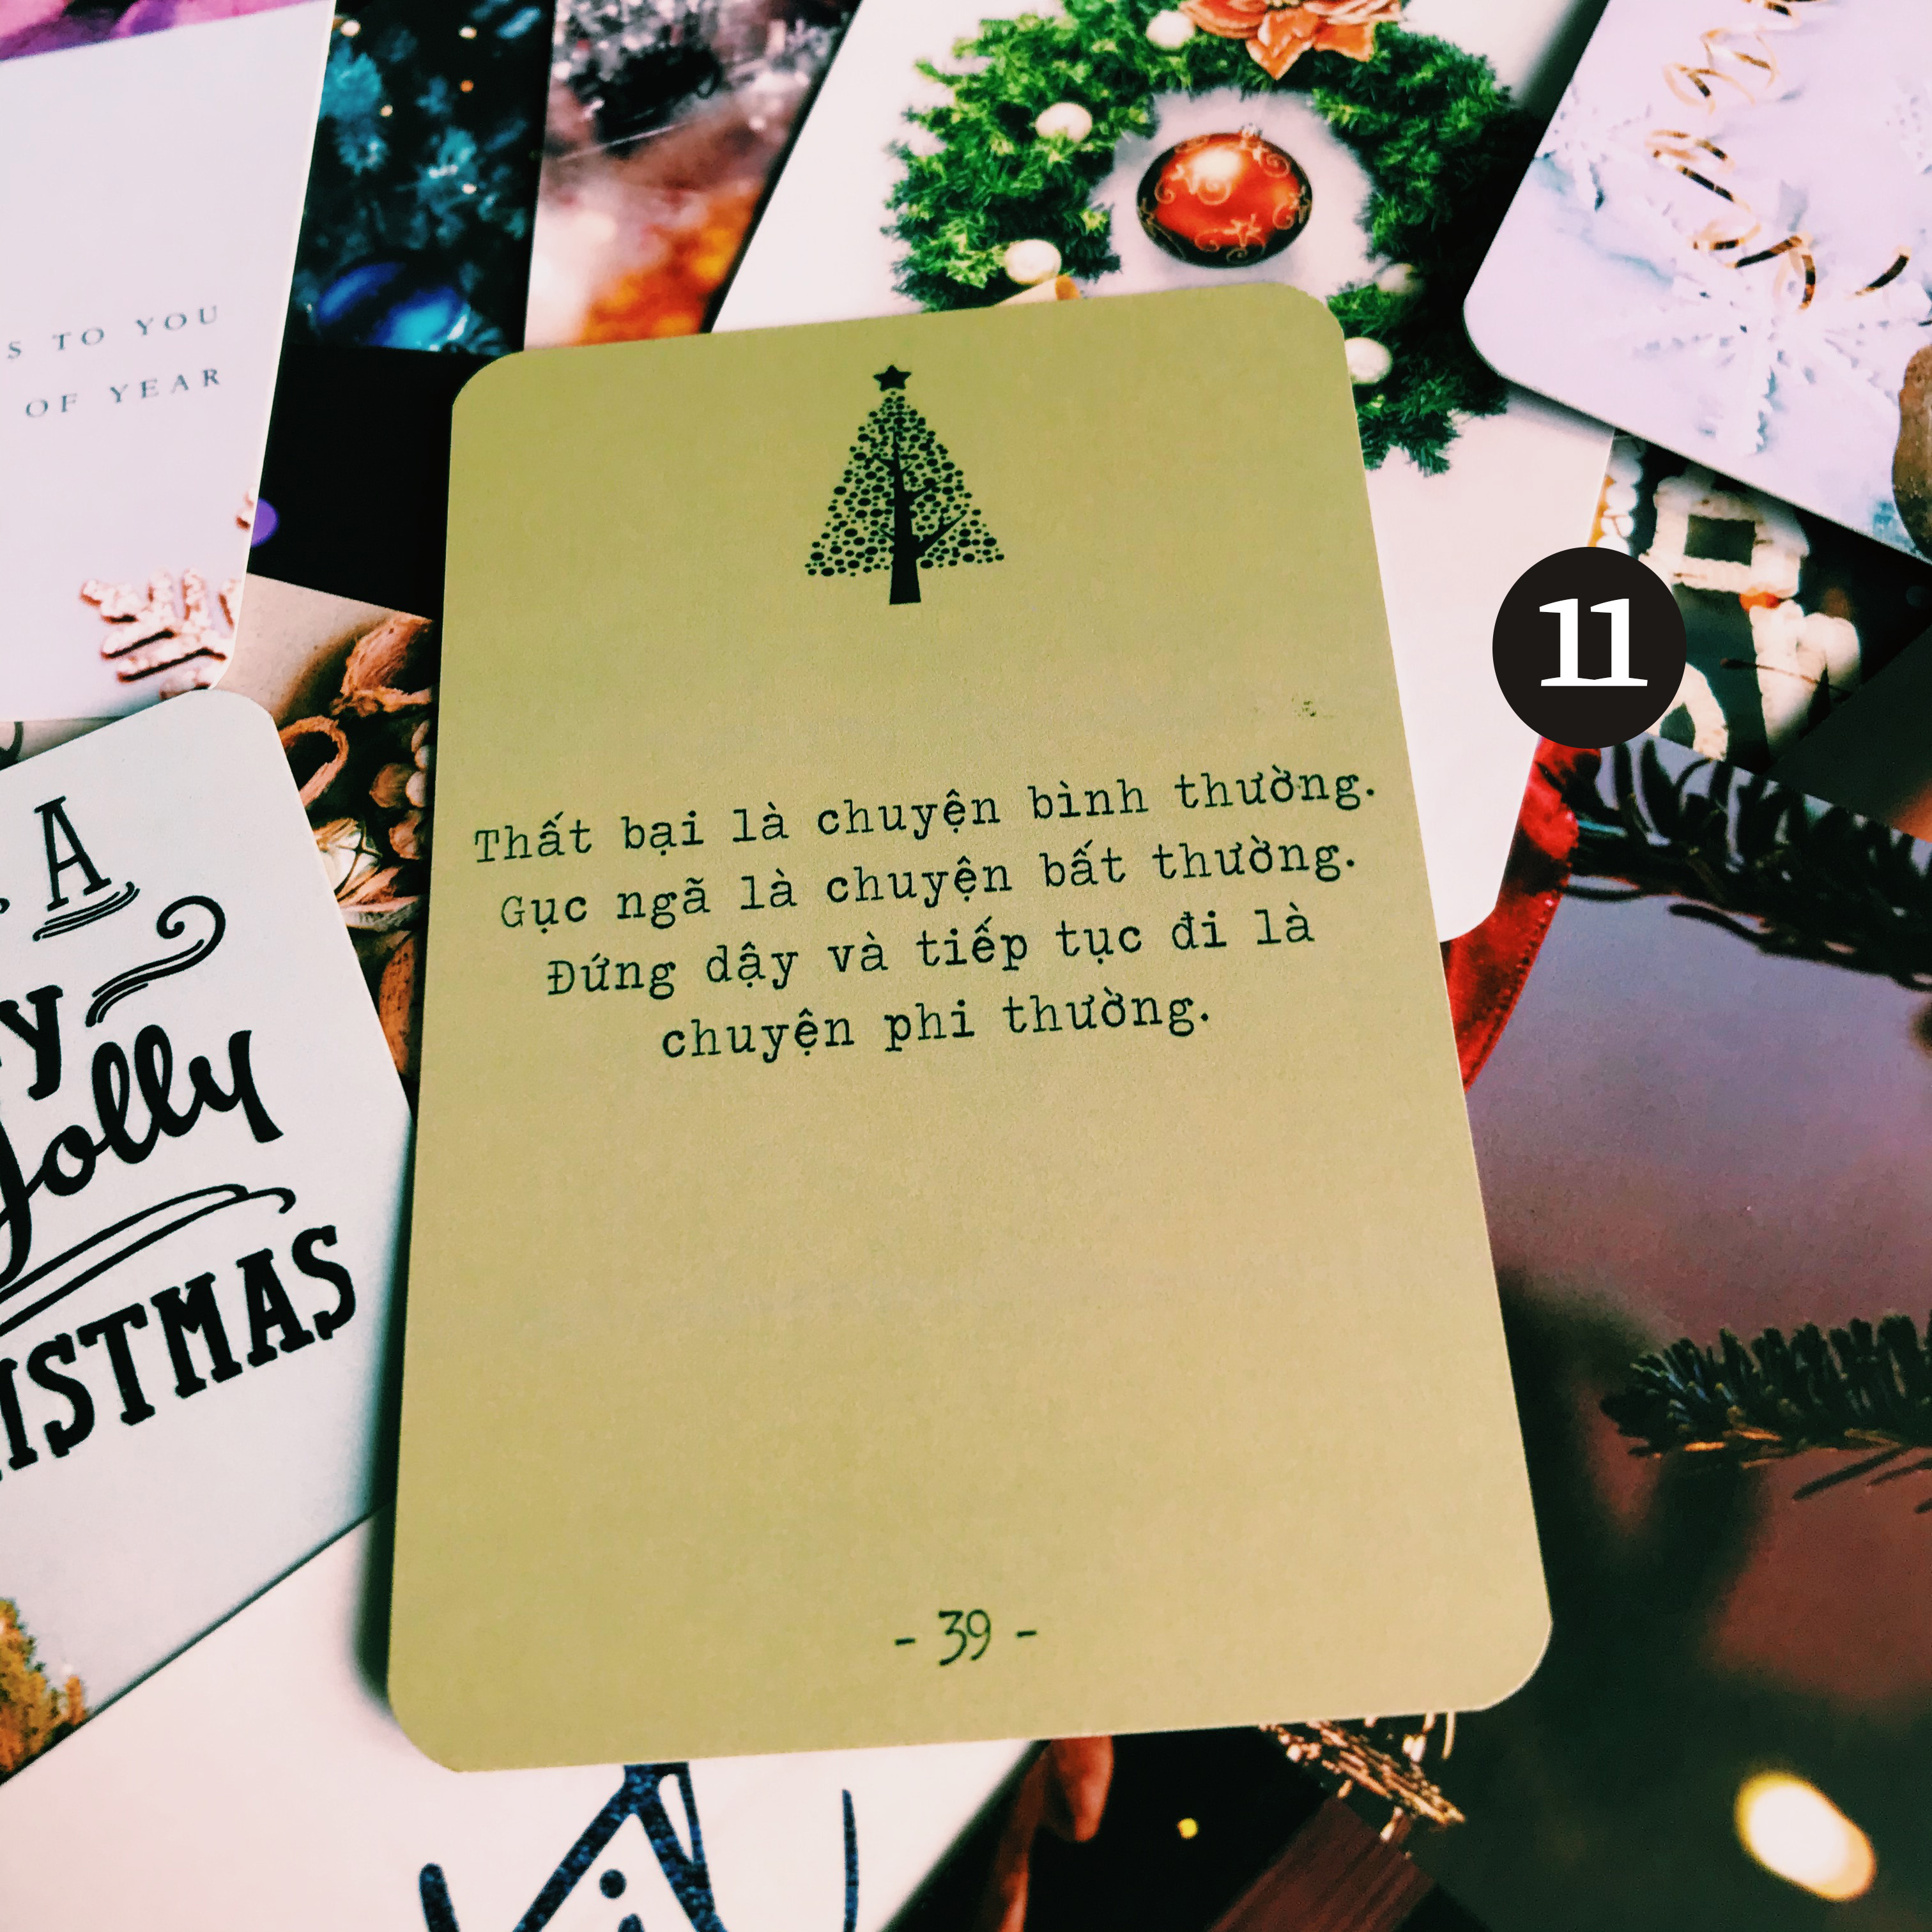 S TO YOU
OF YEAR
11
Thất bại là chuyện bình thường.
Gục ngã là chuyện bất thường.
Đứng dậy và tiếp tục đi là
chuyện phi thường.
- 39 -
A
Jolly